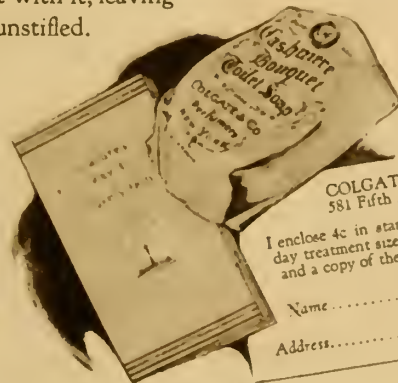 with it, leaving
unstifled.
Cashmere
Bouquet
Toilet Soap
COLGATE & CO
Perfumers
NEW YORK
COLGAT
581 Fifth
I enclose 4c in star
day treatment size
and a copy of the
Name..........
Address........